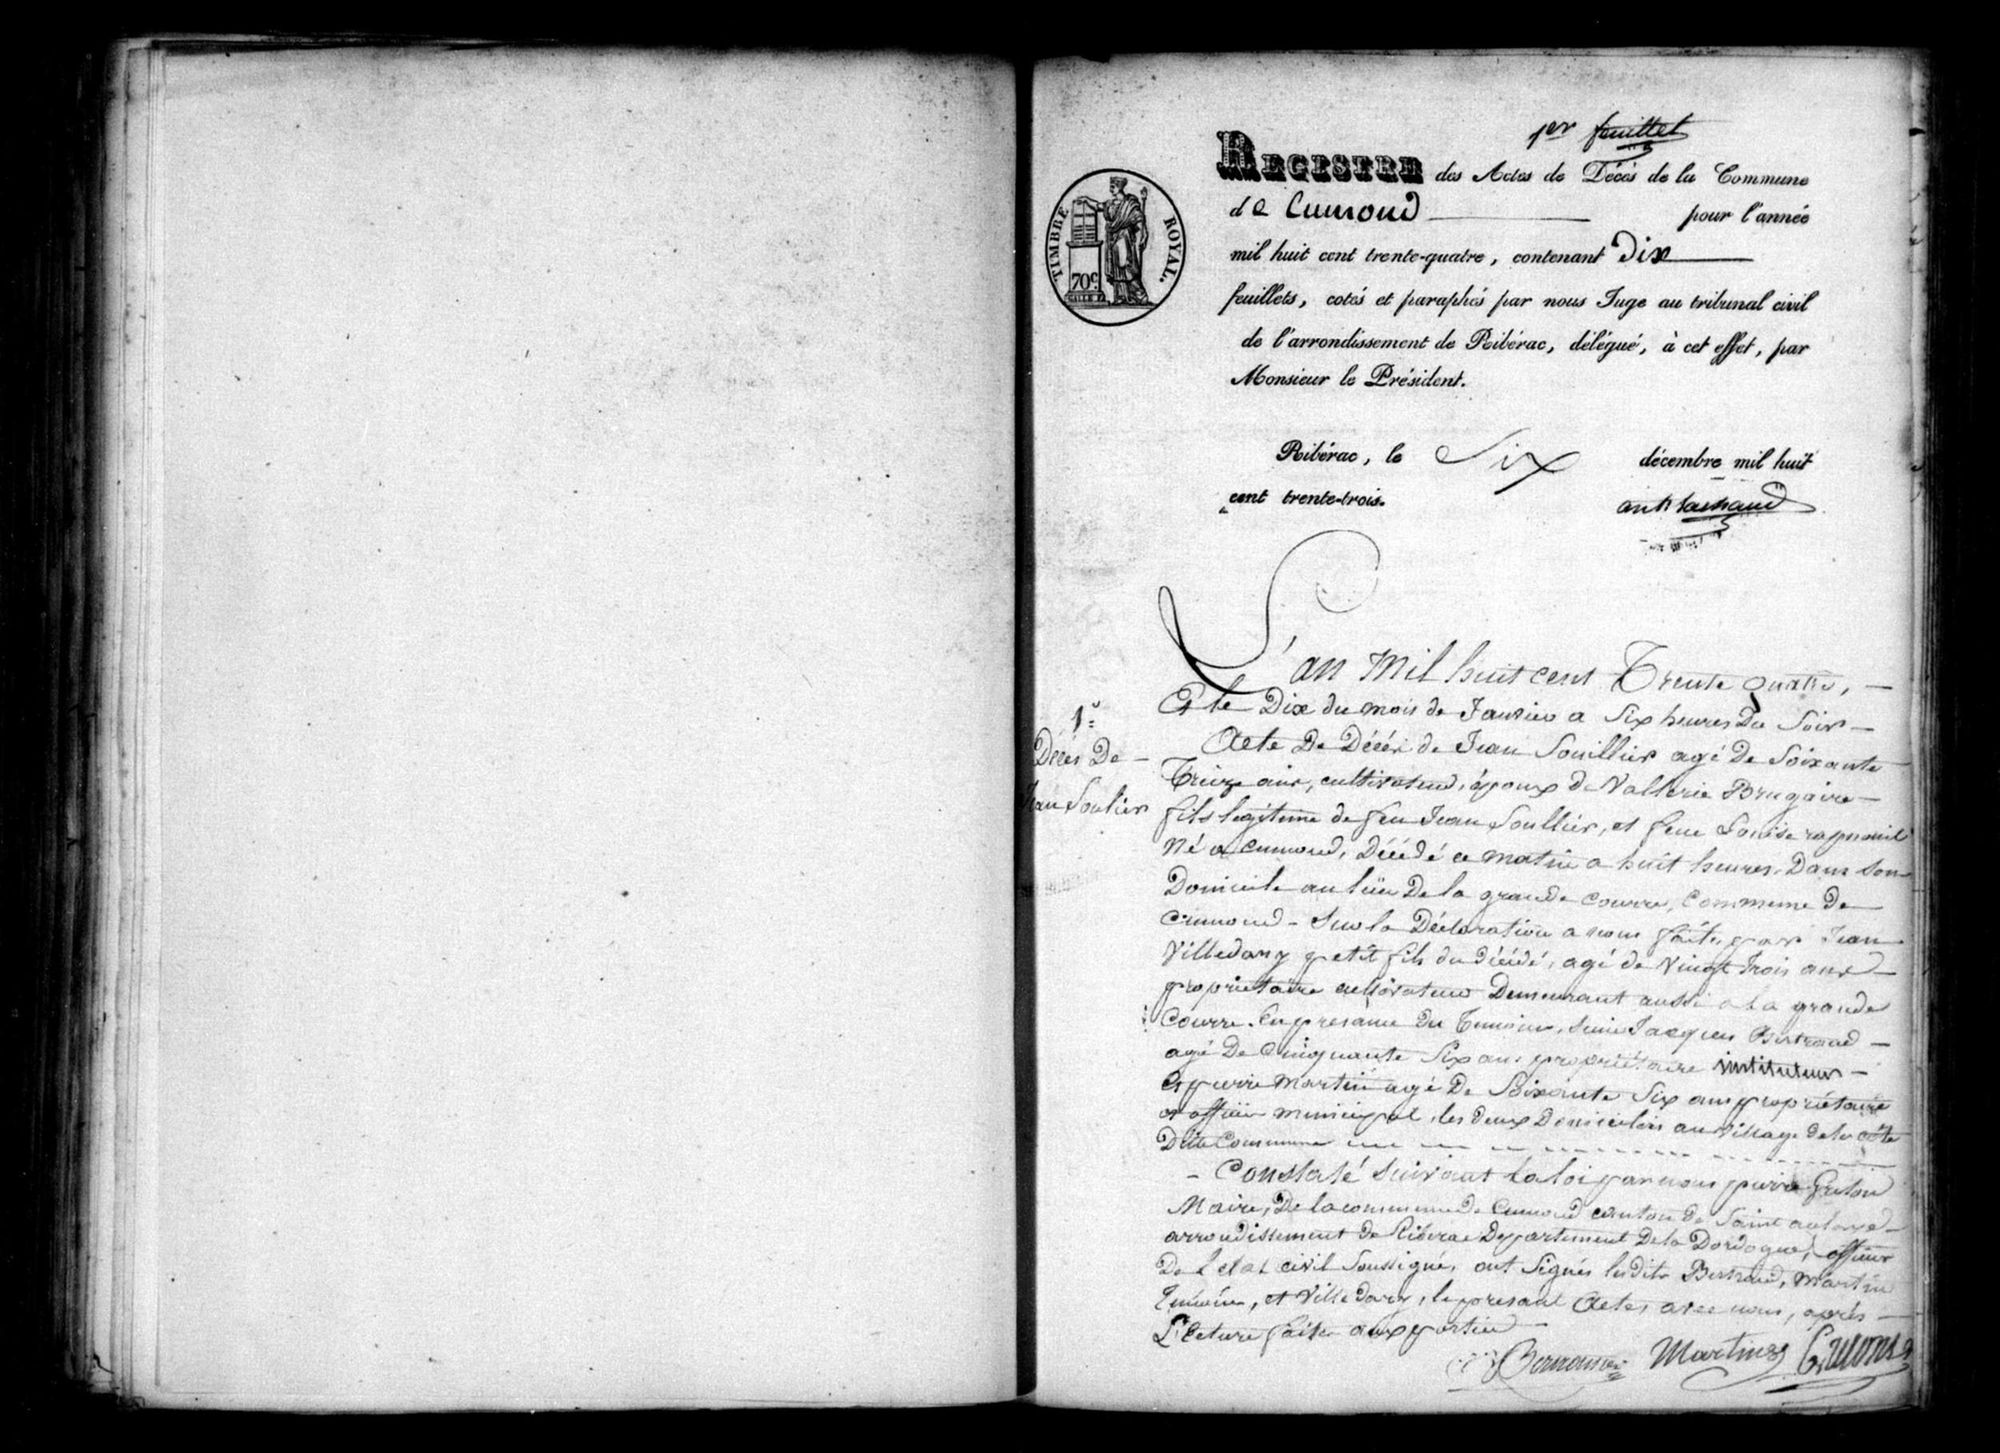 1er feuillet
REGISTRE des Actes de Décès de la Commune
de Cumond pour l'année
mil huit cent trente-quatre, contenant Dix
feuillets, cotés et paraphés par nous Juge au tribunal civil
de l'arrondissement de Ribérac, délégué, à cet effet, par
Monsieur le Président.
TIMBRE ROYAL.
70c.
Ribérac, le Six décembre mil huit
cent trente-trois.
L'an Mil huit cent Trente quatre,
Et le Dix du mois de Janvier a Six heures Du Soir
1º
Décés De
Jean Soulier
Acte De Décés de Jean Souillier agé De Soixante
Treize ans, cultivateur, époux de Vallerie Brugaire
fils légitime de feu Jean Soullier, et feue Louise
Né a Cumond, Décédé ce matin a huit heures, Dans Son
Domicile au lieu De la grande Courre, Commune De
Cumond - Sur la Déclaration a nous faite, par Jean
Villedary petit fils du décédé, agé de Vingt Trois ans
proprietaire cultivateur Demeurant aussi a la grande
Courre. En presance Du Temoins, Jacques Bertrand
agé De Cinquante Six ans proprietaire instituteur
Et pierre Martin agé De Soixante Six ans propriétaire
et officier municipal, les deux Domiciliés au Village de la côte
Dite Commune
- Constaté Suivant la loi par nous pierre
Maire, De la commune de Cumond canton de Saint aulaye
arrondissement de Riberac Departement De la Dordogne, officier
De L'etat civil Soussigné, ont Signés lesdits Bertrand, Martin
Temoins, et Villedary, le presant Acte, avec nous, aprés
Lecture faite aux parties
Martin